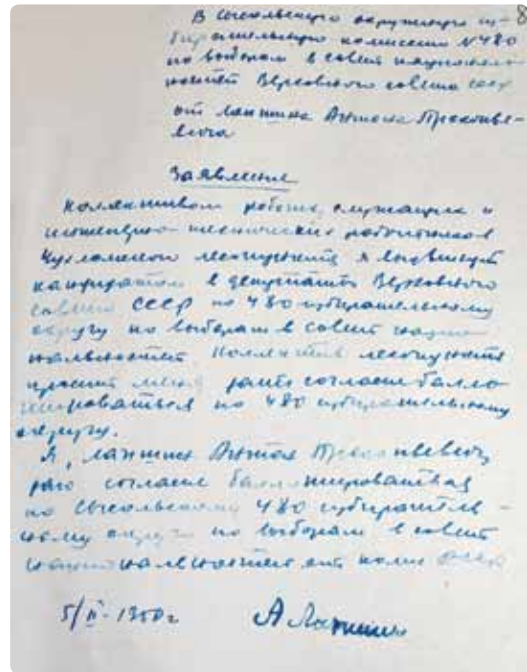 8
В Сысольскую окружную из-
бирательную комиссию №480
по выборам в совет национал
ностей Верховного совета ссср
от Лапшина Антона Прокопье-
вича
Заявление
Коллективом рабочих, служащих и
инженерно технических работников
Чухломского лесопункта я выдвинут
кандидатом в депутаты Верховного
совета СССР по 480 избирательному
округу по выборам в совет нацио
нальностей Коллектив лесопункта
просит меня дать согласие балло
тироваться по 480 избирательному
округу.
Я, Лапшин Антон Прокопьевич,
даю согласие баллотироваться
по Сысольскому 480 избиратель-
ному округу по выборам в совет
национальностей от коми
5/II-1950г
А Лапшин